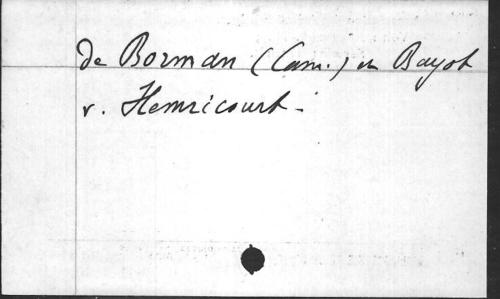 de Borman (Cam.) en Bayot
v. Hemricourt.